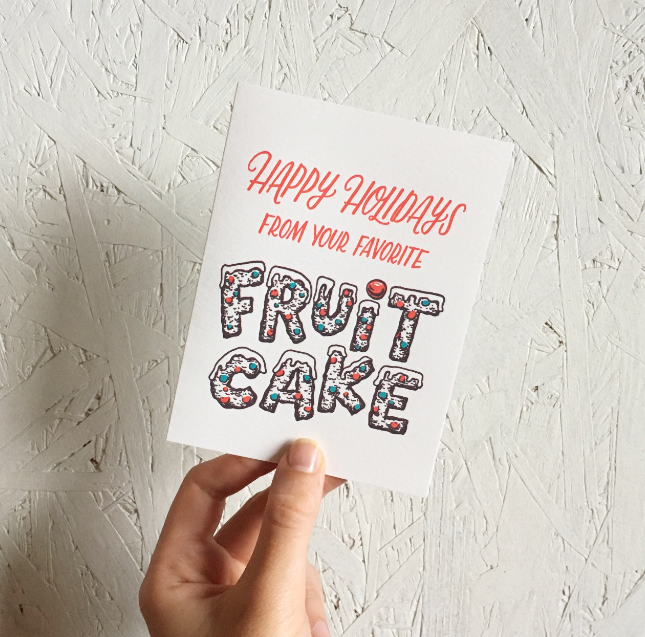 HAPPY HOLIDAYS
FROM YOUR FAVORITE
FRUIT
CAKE